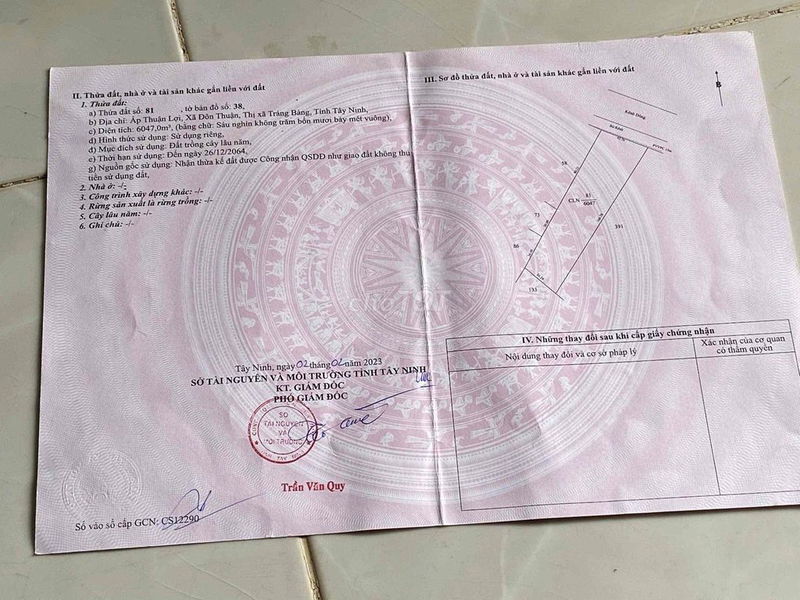 II. Thửa đất, nhà ở và tài sản khác gắn liền với đất
1. Thửa đất:
a) Thửa đất số: 81 , tờ bản đồ số: 38,
b) Địa chỉ: Ấp Thuận Lợi, Xã Đôn Thuận, Thị xã Trảng Bàng, Tỉnh Tây Ninh,
c) Diện tích: 6047,0m², (bằng chữ: Sáu nghìn không trăm bốn mươi bảy mét vuông),
d) Hình thức sử dụng: Sử dụng riêng,
đ) Mục đích sử dụng: Đất trồng cây lâu năm,
e) Thời hạn sử dụng: Đến ngày 26/12/2064,
g) Nguồn gốc sử dụng: Nhận thừa kế đất được Công nhận QSDĐ như giao đất không thu
tiền sử dụng đất,
2. Nhà ở: -/-
3. Công trình xây dựng khác: -/-
4. Rừng sản xuất là rừng trồng: -/-
5. Cây lâu năm: -/-
6. Ghi chú: -/-
Tây Ninh, ngày 02 tháng 02 năm 2023
SỞ TÀI NGUYÊN VÀ MÔI TRƯỜNG TỈNH TÂY NINH
KT. GIÁM ĐỐC
PHÓ GIÁM ĐỐC
SỞ
TÀI NGUYÊN
VÀ
MÔI TRƯỜNG
Trần Văn Quy
Số vào sổ cấp GCN: CS12290
III. Sơ đồ thửa đất, nhà ở và tài sản khác gắn liền với đất
B
Kênh Đông
Bờ Kênh
58
CLN 81
6047
73
391
86
135
IV. Những thay đổi sau khi cấp giấy chứng nhận
Nội dung thay đổi và cơ sở pháp lý
Xác nhận của cơ quan
có thẩm quyền